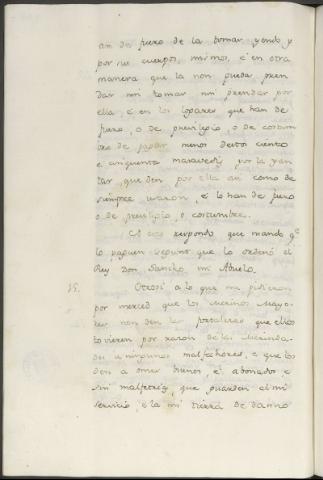 an de fuero de la tomar yendo y
por sus cuerpos, mismos, é en otra
manera que la non pueda pren
dar nin tomar nin prendar por
ella, é en los logares que han de
fuero, o de previlegio, o de costum
bre de pagar menos destos ciento
e cinquenta maravedis por la yan
tar, que den por ella asi como de
siempre usaron, e lo han de fuero
o de previlegio o costumbre.
A esto respondo que mando qe
lo paguen segunt que lo ordenó el
Rey Don Sancho mi Abuelo.
35. Otrosí a lo que me pidieron
por merced que los merinos Mayo-
res non den las fortalezas que ellos
tovieren por razon de las Merinda-
des a ningunos malfechores, e que los
den a omes buenos, é abonados, e
sin malfetrias, que guarden el mi
servicio, e la mi tierra de danno